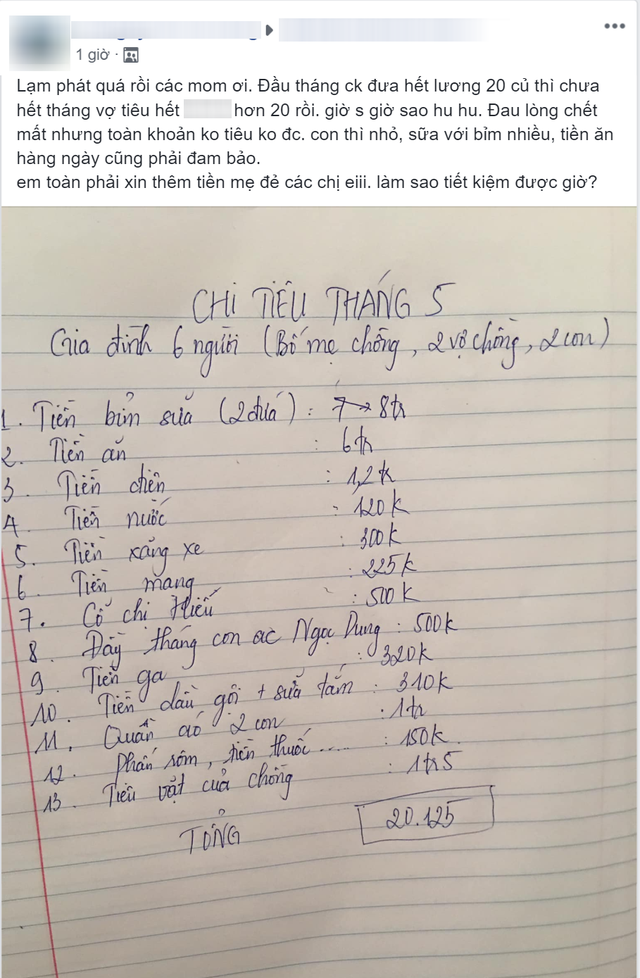 1 giờ
Lạm phát quá rồi các mom ơi. Đầu tháng ck đưa hết lương 20 củ thì chưa
hết tháng vợ tiêu hết hơn 20 rồi. giờ s giờ sao hu hu. Đau lòng chết
mất nhưng toàn khoản ko tiêu ko đc. con thì nhỏ, sữa với bỉm nhiều, tiền ăn
hàng ngày cũng phải đam bảo.
em toàn phải xin thêm tiền mẹ đẻ các chị eiii. làm sao tiết kiệm được giờ?
CHI TIÊU THÁNG 5
Gia đình 6 người (Bố mẹ chồng, 2 vợ chồng, 2 con)
1. Tiền bỉm sữa (2 đứa) : 7 → 8tr
2. Tiền ăn : 6tr
3. Tiền điện : 1,2tr
4. Tiền nước : 120k
5. Tiền xăng xe : 300k
6. Tiền mạng : 225k
7. Cỗ chị Hiếu : 500k
8. Đầy tháng con ac Ngọc Dung : 500k
9. Tiền ga : 320k
10. Tiền dầu gội + sữa tắm : 310k
11. Quần áo 2 con : 1tr
12. Phấn rôm, tiền thuốc..... : 150k
13. Tiêu vặt của chồng : 1tr5
TỔNG 20.125